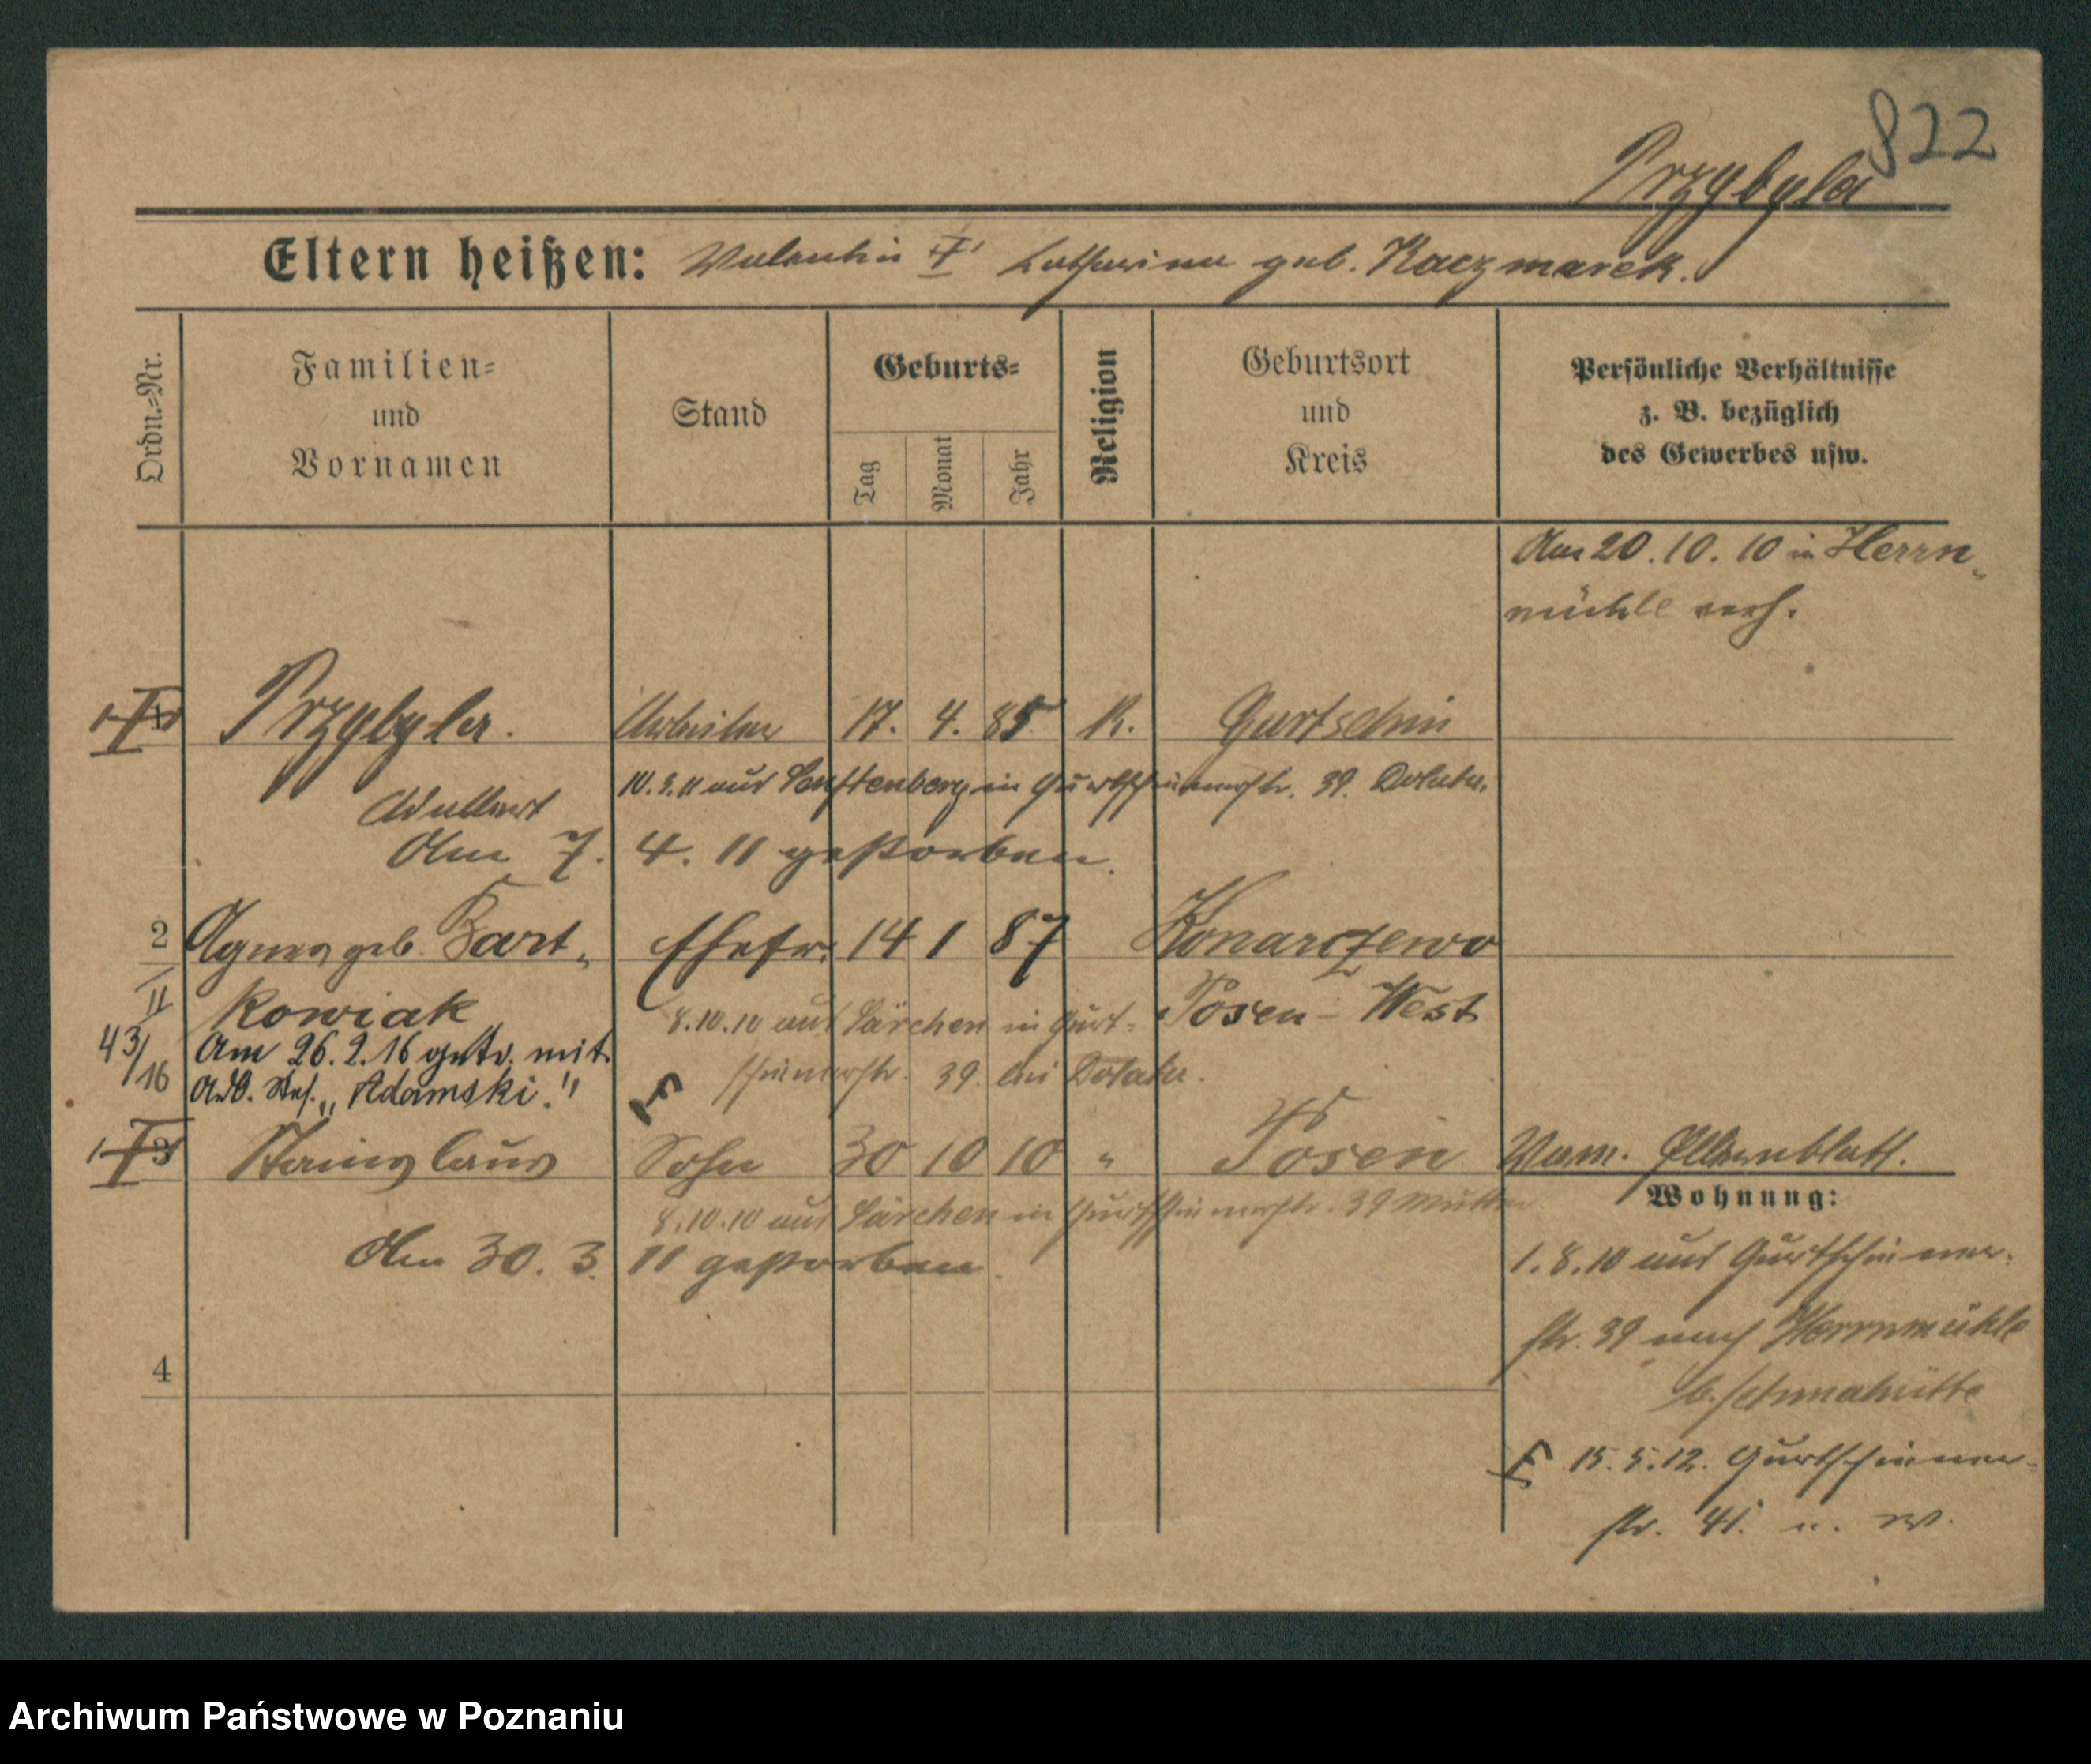 822
Przybyla
Eltern heißen: Valentin I Katharina geb. Kaczmarek.
Ordn.-Nr.
Familien-
und
Vornamen
Stand
Geburts-
Tag
Monat
Jahr
Religion
Geburtsort
und
Kreis
Persönliche Verhältnisse
z. B. bezüglich
des Gewerbes usw.
Am 20.10.10 in Herrn-
mühle verh.
1 Przybyla. Arbeiter 17. 4. 85 K. Gurtschin
10.3.11 aus Senftenberg in Gurtschinerstr. 39.
Adalbert
Am 7. 4. 11 gestorben.
2 Agnes geb. Bart- Ehefr. 14 1 87 Konarczewo
II kowiak Posen-West
8.10.10 aus Särchen in Gurt-
43/16
Am 26.2.16 getr. mit
Arb. "Adamski."
schinerstr. 39. bei
3 Stanislaus Sohn 30 10 10 " Posen
8.10.10 aus Särchen in Gurtschinerstr. 39 Mutter
Am 30. 3. 11 gestorben.
4
Vam. Elternblatt.
Wohnung:
1.8.10 aus Gurtschiner-
str. 39 nach Herrnmühle
15.5.12. Gurtschiner-
str. 41. u. W.
Archiwum Państwowe w Poznaniu